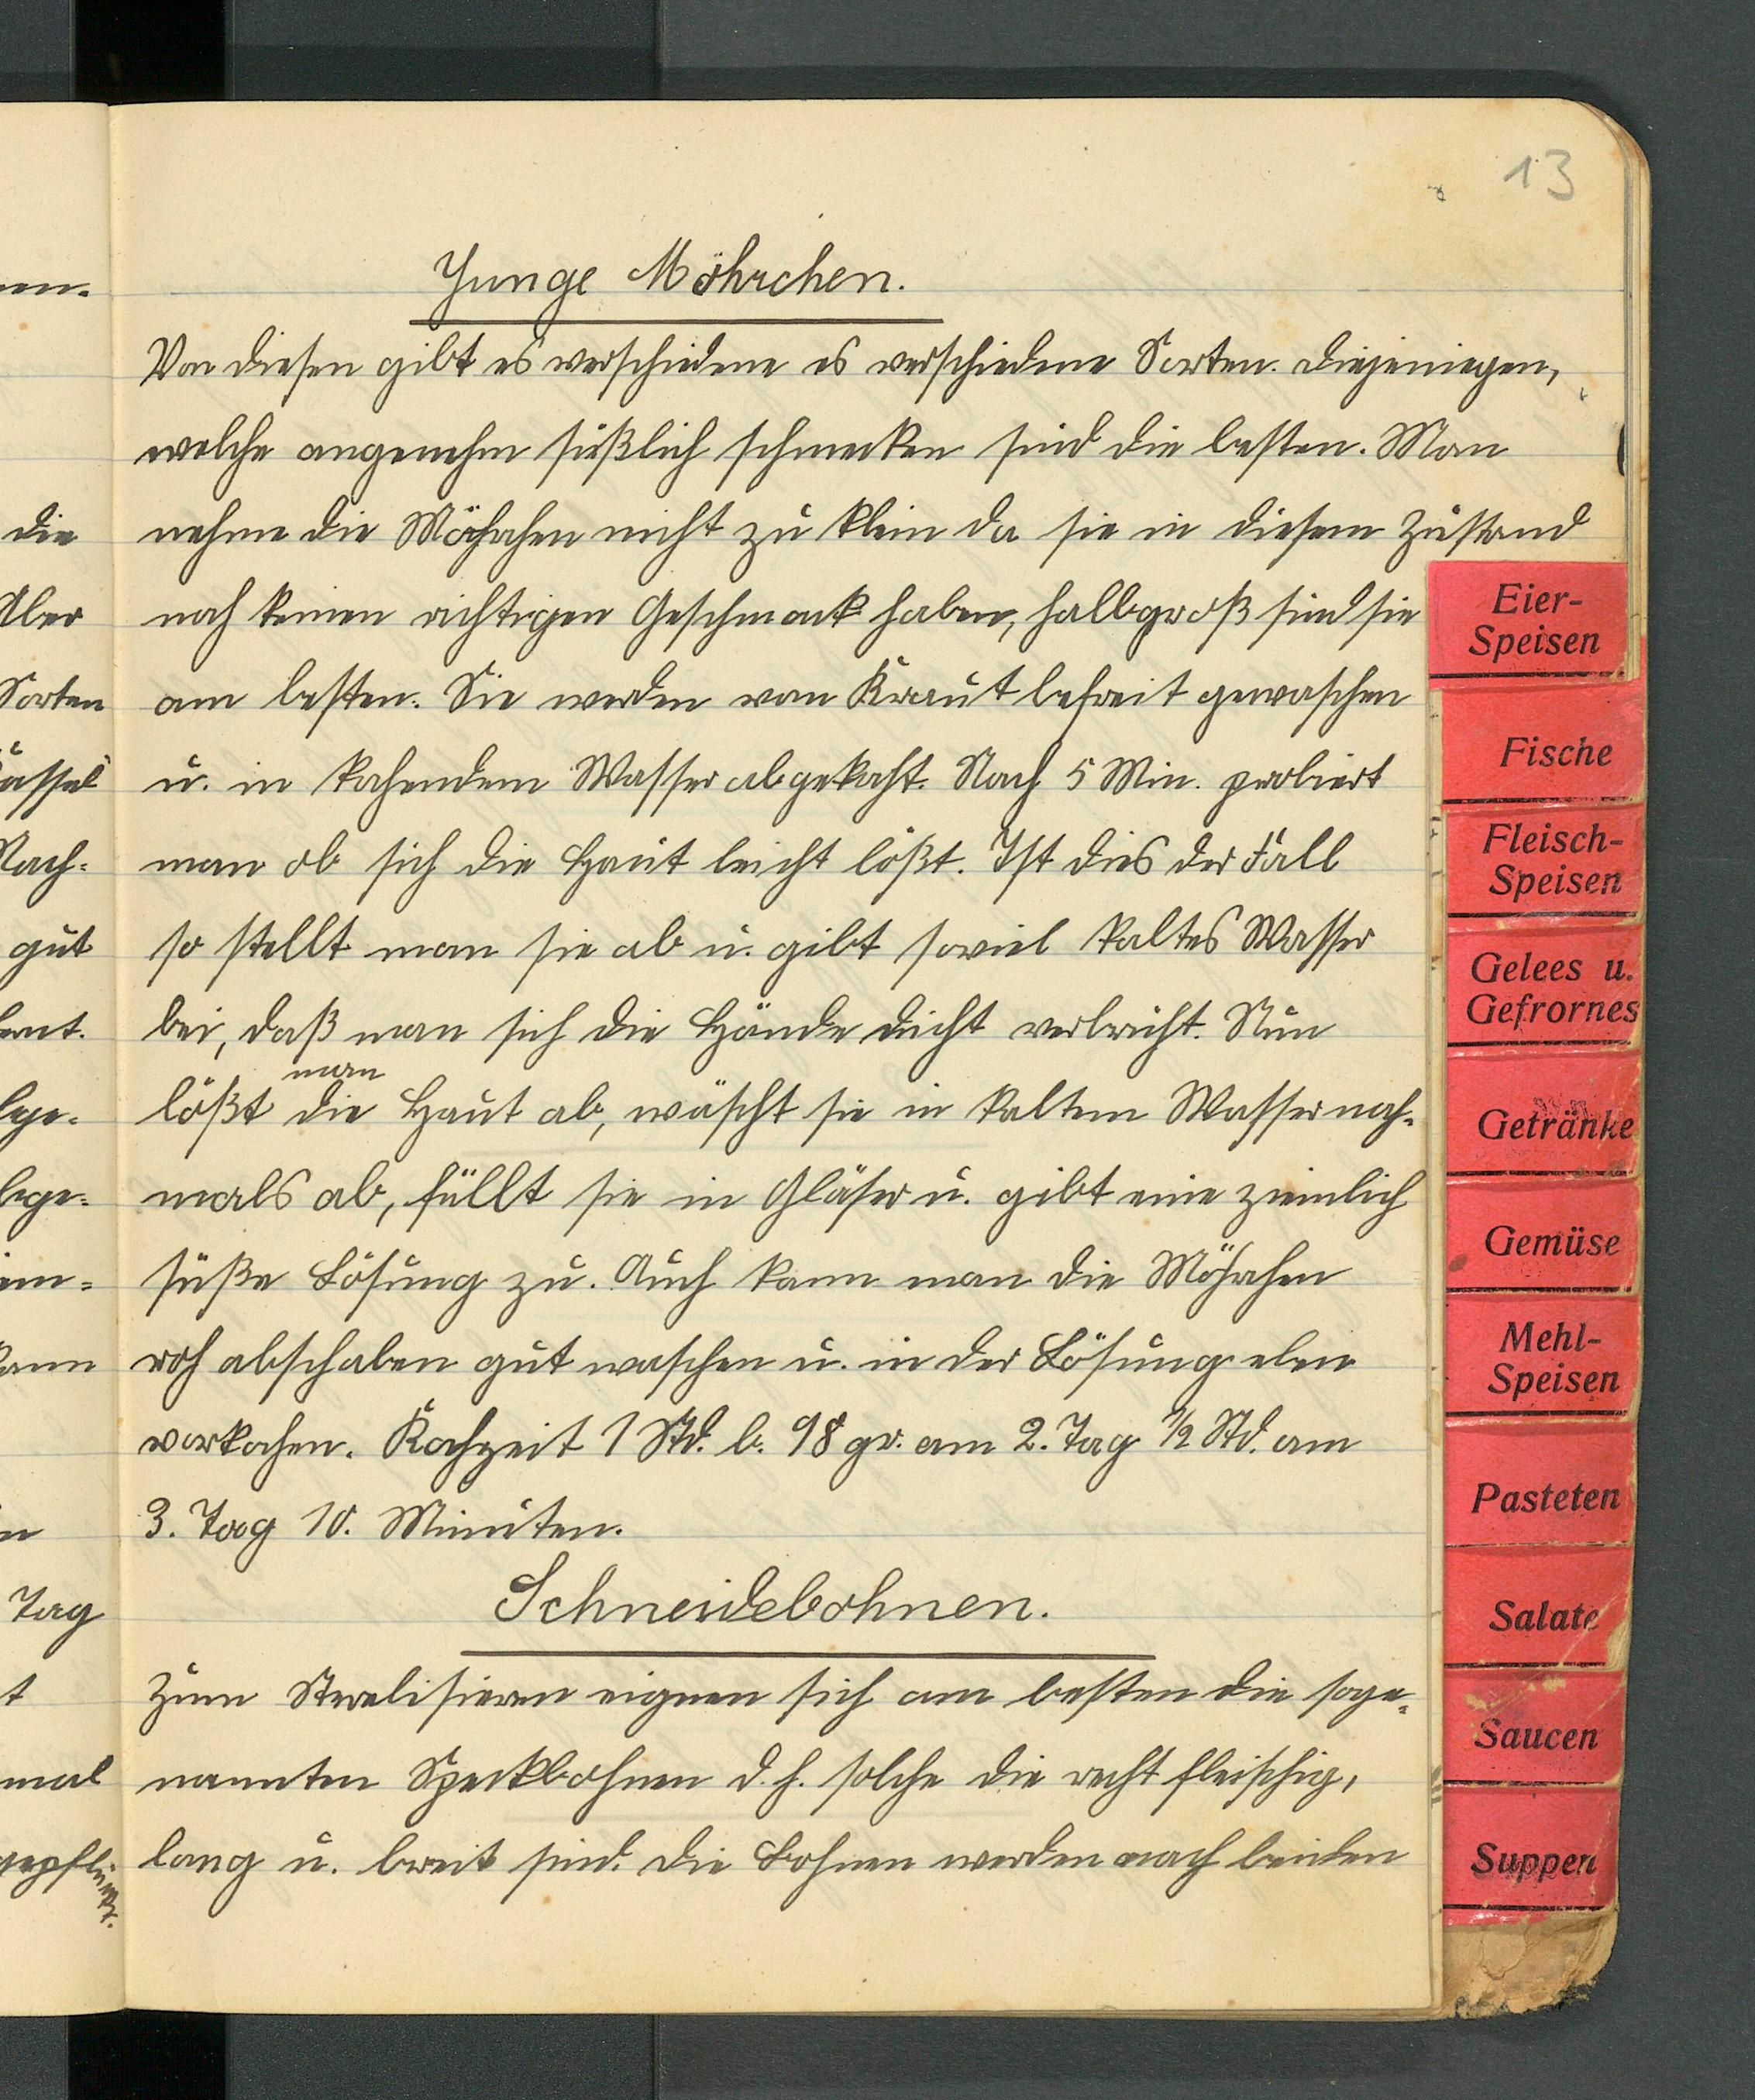 13
Junge Möhrchen.
Von diesen gibt es verschiedene es verschiedene Sorten. Diejeniegen,
welche angenehm süßlich schmecken sind die besten. Man
nehme die Möhrchen nicht zu klein da sie in diesem Zustand
noch keinen richtigen Geschmack haben, halbgroß sind sie
am besten. Sie werden von Kraut befreit gewaschen
u. in kochendem Wasser abgekocht. Nach 5 Min. probiert
man ob sich die Haut leicht lößt. Ist dies der Fall
so stellt man sie ab u. gibt soviel kaltes Wasser
bei, daß man sich die Hände nicht verbrüht. Nun
man
lößt die Haut ab, wäscht sie in kaltem Wasser noch-
mals ab, füllt sie in Gläser u. gibt eine ziemlich
süße Lösung zu. Auch kann man die Möhrchen
roh abschaben gut waschen u. in der Lösung eben
vorkochen. Kochzeit 1 Std. b. 98 gr. am 2. Tag 1/2 Std. am
3. Tag 10. Minuten.
Schneidebohnen.
Zum Sterelisieren eignen sich am besten die soge-
nannten Speckbohnen d. h. solche die recht fleischig,
lang u. breit sind. Die Bohnen werden nach beiden
die
Aber
Sorten
Nach-
gut
Tag
mal
Eier-
Speisen
Fische
Fleisch-
Speisen
Gelees u.
Gefrornes
Getränke
Gemüse
Mehl-
Speisen
Pasteten
Salate
Saucen
Suppen